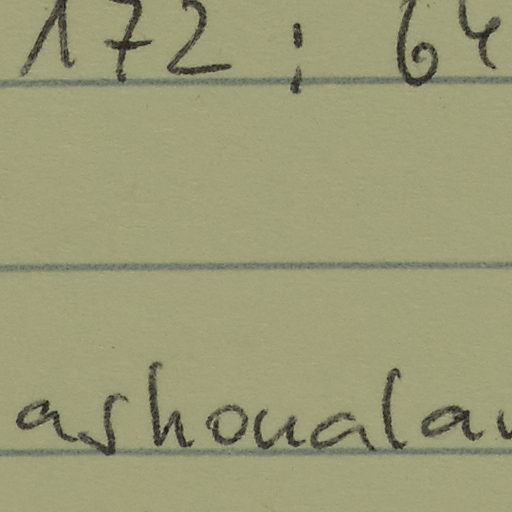 172 ; 64
ashoualau